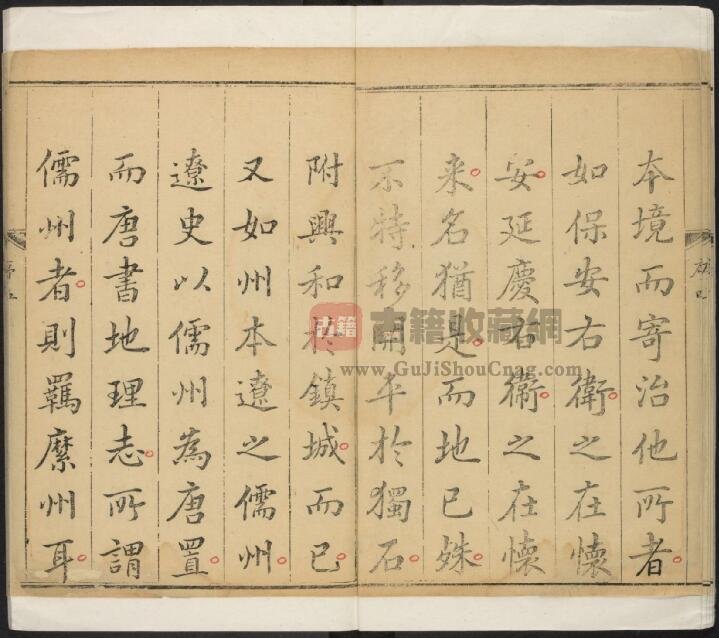 本境而寄治他所者
如保安右衛之在懷
安延慶右衛之在懷
来名猶是而地已殊
不特移開平於獨石
附興和於鎮城而已
又如州本遼之儒州
遼史以儒州為唐置
而唐書地理志所謂
儒州者則羈縻州耳
古籍
古籍收藏網
www.GuJiShouCang.com